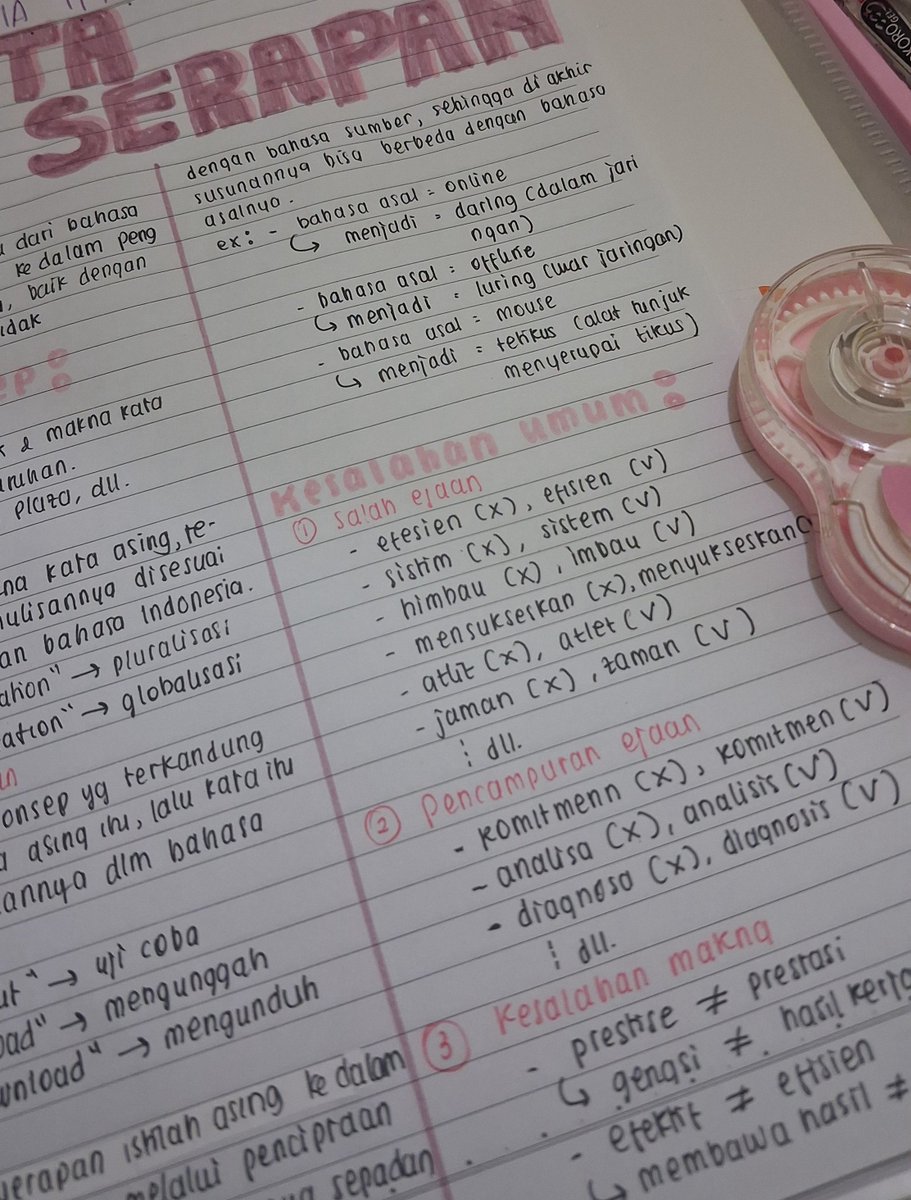 IA
TA
SERAPAN
dari bahasa
ke dalam peng
, baik dengan
idak
ep:
& makna kata
uruhan.
plaza, dll.
na kata asing, te-
nulisannya disesuai
an bahasa Indonesia.
ation" → pluralisasi
ation" → globalisasi
an
onsep yg terkandung
asing itu, lalu kata itu
annya dlm bahasa
ut" → uji coba
oad" → mengunggah
wnload" → mengunduh
yerapan istilah asing ke dalam
melalui penciptaan
sepadan
dengan bahasa sumber, sehingga di akhir
susunannya bisa berbeda dengan bahasa
asalnya.
ex: - bahasa asal = online
↳ menjadi = daring (dalam jari
ngan)
- bahasa asal = offline
↳ menjadi = luring (luar jaringan)
- bahasa asal = mouse
↳ menjadi = tetikus (alat tunjuk
menyerupai tikus)
Kesalahan umum:
① Salah ejaan
- efesien (x), efisien (v)
- sistim (x), sistem (v)
- himbau (x), imbau (v)
- mensukseskan (x), menyukseskan (
- atlit (x), atlet (v)
- jaman (x), zaman (v)
⋮ dll.
② Pencampuran ejaan
- komitmenn (x), komitmen (v)
- analisa (x), analisis (v)
- diagnosa (x), diagnosis (v)
⋮ dll.
③ Kesalahan makna
- prestise ≠ prestasi
↳ gengsi ≠ hasil kerja
- efektif ≠ efisien
↳ membawa hasil ≠
KORO
GEL